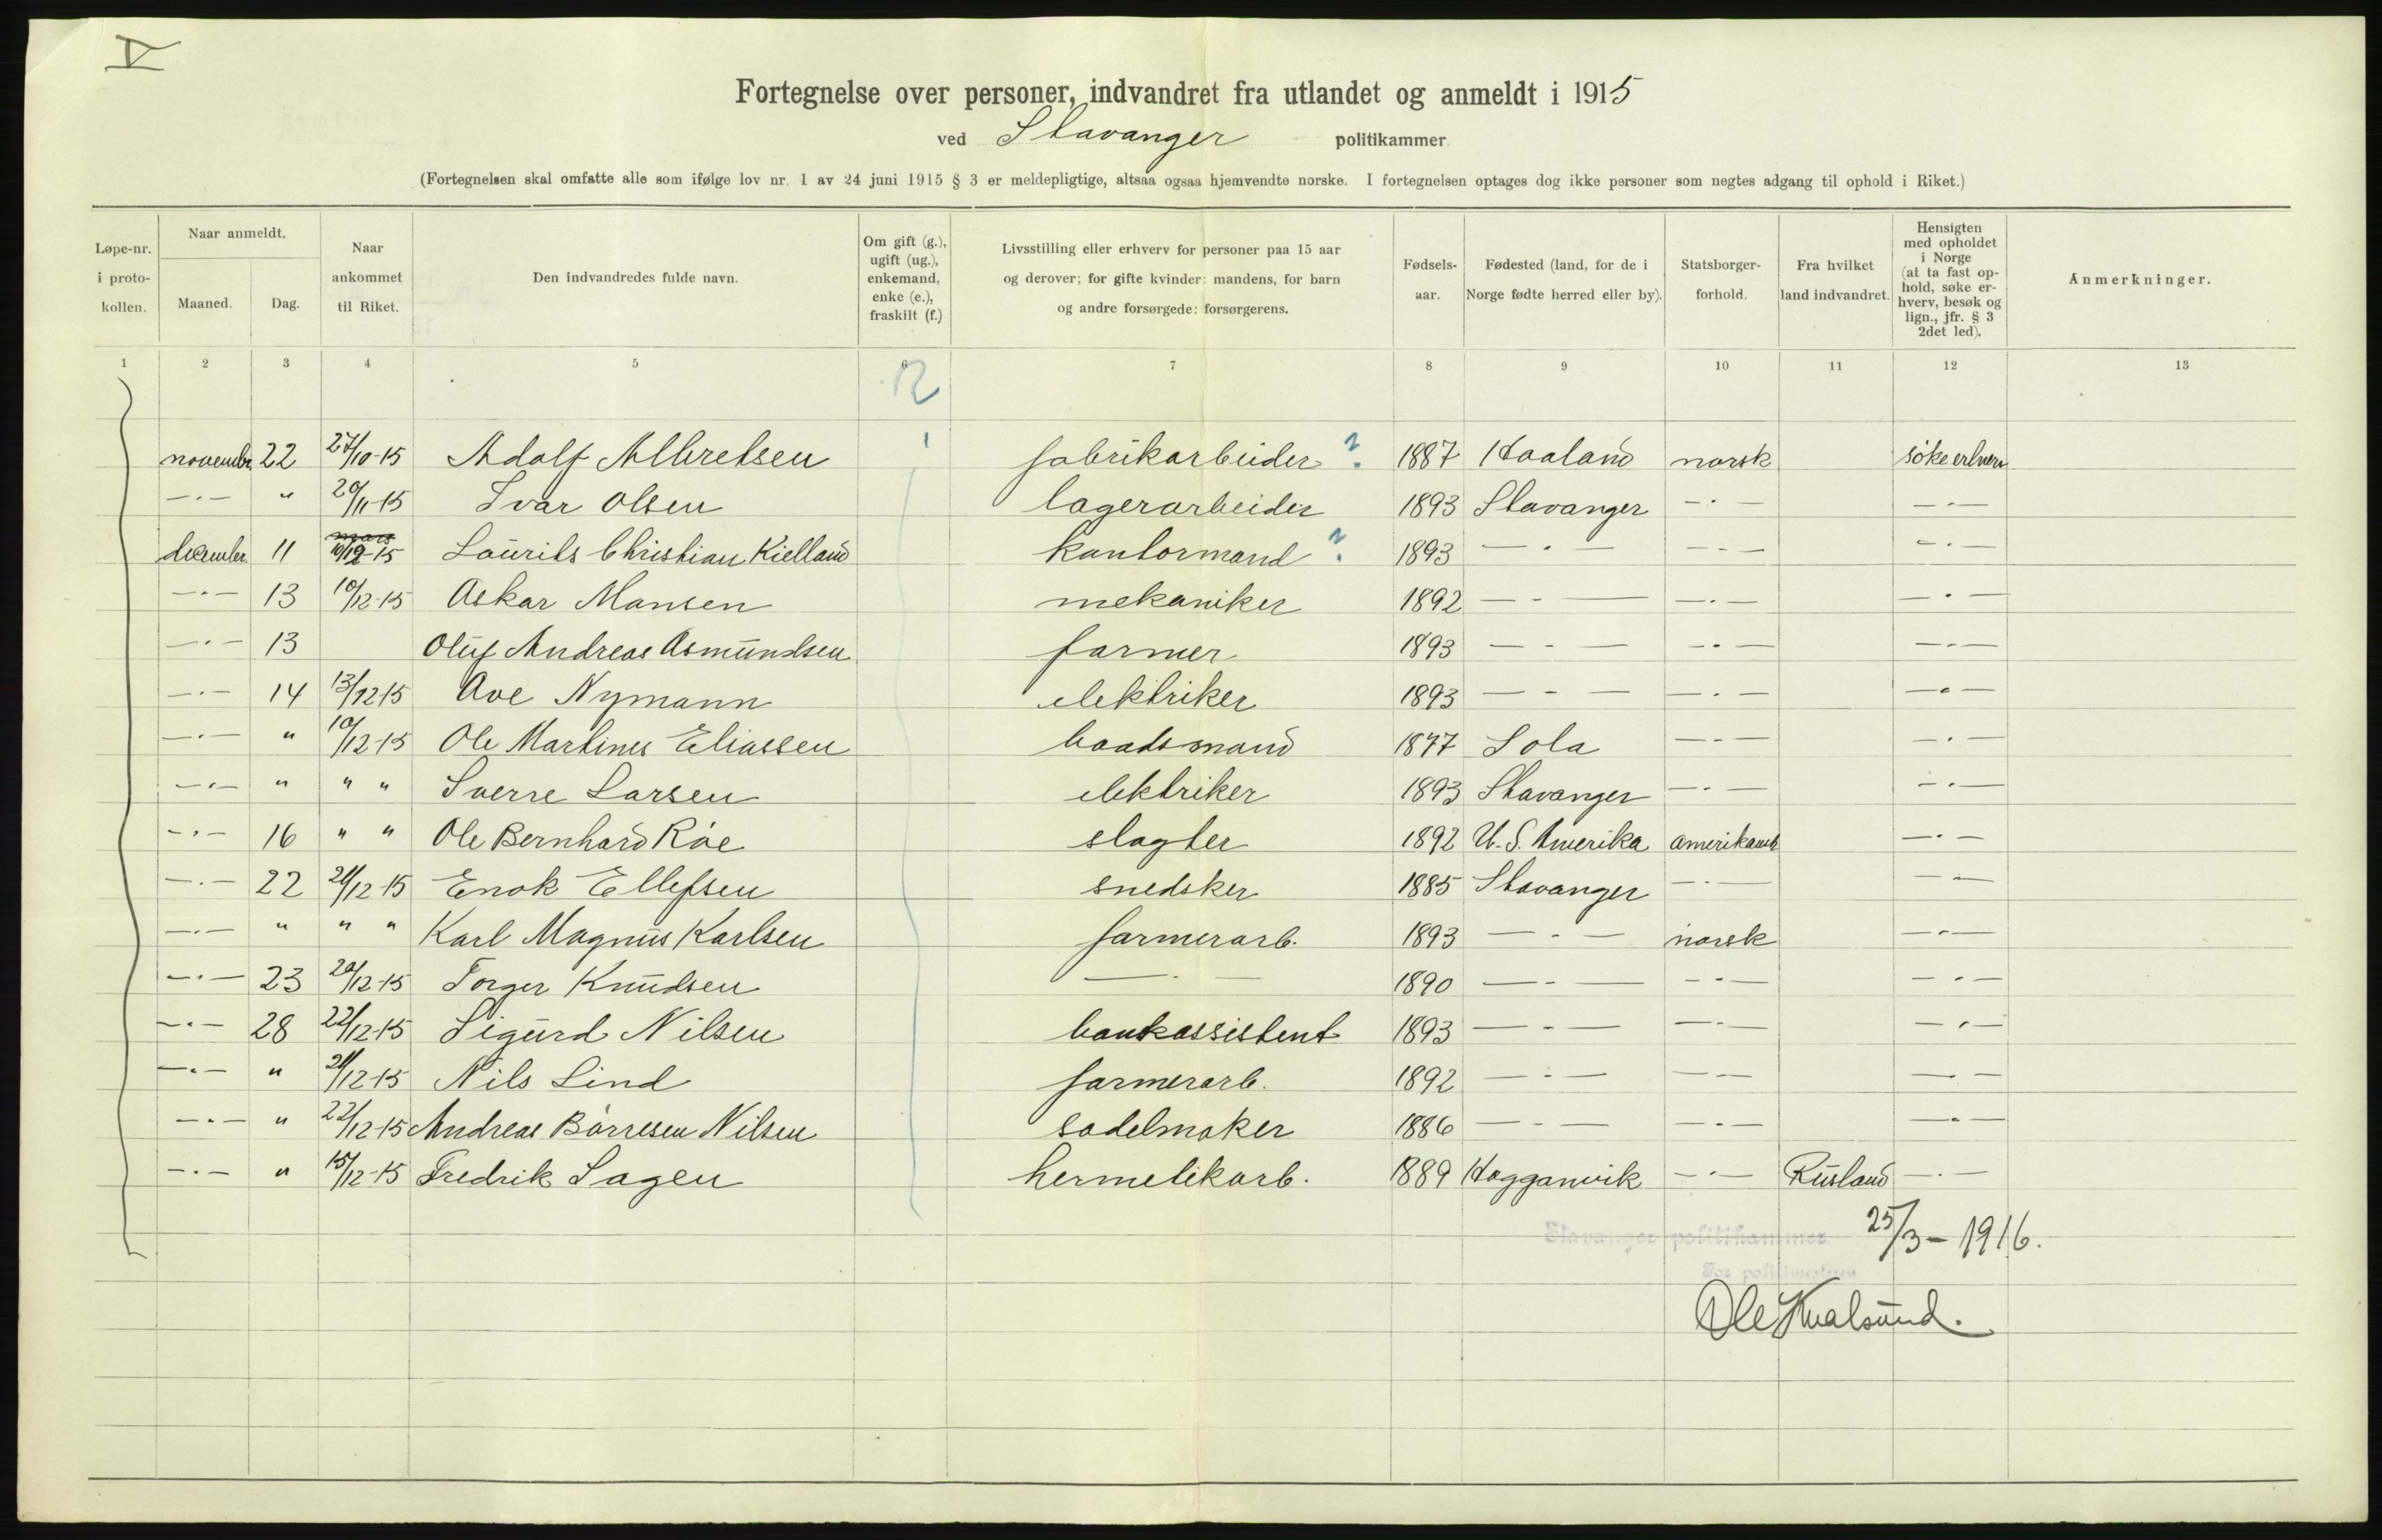 V
Fortegnelse over personer, indvandret fra utlandet og anmeldt i 1915
ved Stavanger politikammer
(Fortegnelsen skal omfatte alle som ifølge lov nr. 1 av 24 juni 1915 § 3 er meldepligtige, altsaa ogsaa hjemvendte norske. I fortegnelsen optages dog ikke personer som negtes adgang til ophold i Riket.)
Løpe-nr. i proto- kollen.
Naar anmeldt.
Maaned.
Dag.
Naar ankommet til Riket.
Den indvandredes fulde navn.
Om gift (g.), ugift (ug.), enkemand, enke (e.), fraskilt (f.)
Livsstilling eller erhverv for personer paa 15 aar og derover; for gifte kvinder: mandens, for barn og andre forsørgede: forsørgerens.
Fødsels- aar.
Fødested (land, for de i Norge fødte herred eller by).
Statsborger- forhold.
Fra hvilket land indvandret.
Hensigten med opholdet i Norge (at ta fast op- hold, søke er- hverv, besøk og lign., jfr. § 3 2det led).
Anmerkninger.
1 2 3 4 5 6 7 8 9 10 11 12 13
november 22 27/10-15 Adolf Albretsen fabrikarbeider ? 1887 Haaland norsk søke erhverv
—·— " 20/11-15 Ivar Olsen lagerarbeider 1893 Stavanger —·— —·—
december 11 mars 10/12-15 Laurits Christian Kielland kontormand ? 1893 —·— —·— —·—
—·— 13 10/12-15 Oskar Monsen mekaniker 1892 —·— —·— —·—
—·— 13 Oluf Andreas Asmundsen farmer 1893 —·— —·— —·—
—·— 14 13/12-15 Ove Nymann elektriker 1893 —·— —·— —·—
—·— " 10/12-15 Ole Martines Eliassen baadsmand 1877 Sola —·— —·—
—·— " " " Sverre Larsen elektriker 1893 Stavanger —·— —·—
—·— 16 " " Ole Bernhard Røe slagter 1892 U.S. Amerika amerikansk —·—
—·— 22 21/12 15 Enok Ellefsen snedker 1885 Stavanger —·— —·—
—·— " " " Karl Magnus Karlsen farmerarb. 1893 —·— norsk —·—
—·— 23 20/12-15 Torger Knudsen —·— 1890 —·— —·— —·—
—·— 28 22/12-15 Sigurd Nilsen bankassistent 1893 —·— —·— —·—
—·— " 21/12-15 Nils Lind farmerarb. 1892 —·— —·— —·—
—·— " 22/12-15 Andreas Børresen Nilsen sadelmaker 1886 —·— —·— —·—
—·— " 15/12-15 Fredrik Sagen hermetikarb. 1889 Hogganvik —·— Rusland —·—
Stavanger politikammer 25/3-1916.
For politimesteren
Ole Kvalsund.